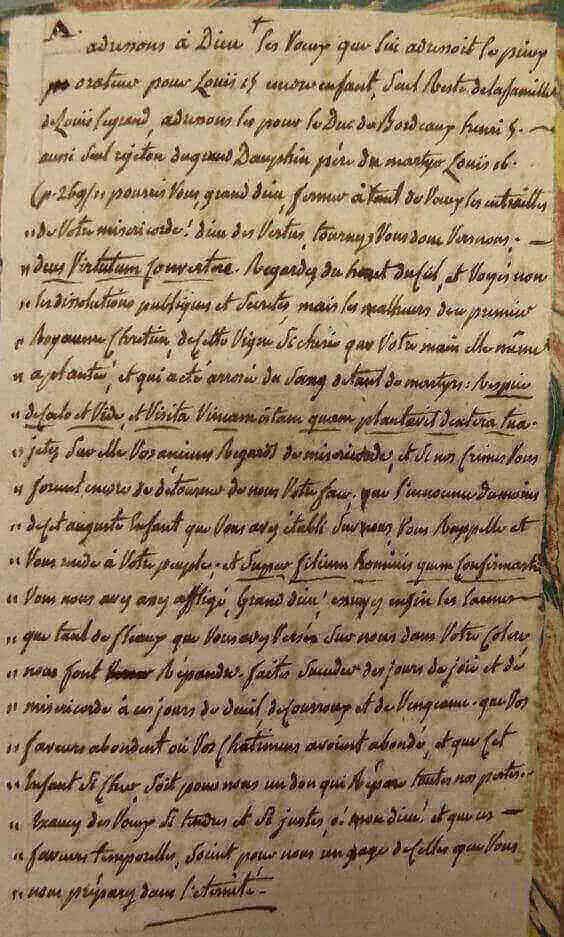 A.
adressons à Dieu + les Voeux que lui adressoit le pieux
orateur pour Louis 15 encore enfant, Seul Reste de la famille
de Louis legrand, adressons les pour le Duc de Bordeaux henri 5. —
aussi Seul rejeton du grand Dauphin père du martyr Louis 16.
(p. 269) " pourriez Vous grand dieu, fermer à tant de Voeux les entrailles
" de Votre misericorde! dieu des Vertus, tournez Vous donc Vers nous. —
" deus Virtutum Convertere. Regardez du haut du Ciel, et Voyez non
" les dissolutions publiques et Secretes, mais les malheurs de ce premier
" Royaume Chretien, de Cette Vigne Si cherie que Votre main elle même
" a plantée, et qui a été arrosée du Sang de tant de martyrs: Respice
" de Caelo et Vide, et Visita Vineam istam quam plantavit dextera tua.
" jetez Sur elle Vos anciens Regards de misericorde, et Si nos Crimes Vous
" forcent encore de detourner de nous Votre face, que l'innocence du moins
" de Cet auguste Enfant que Vous avez établi Sur nous, Vous Rappelle et
" Vous rende à Votre peuple. et Super filium hominis quem Confirmasti
" Vous nous avez assez affligé, Grand dieu! essuyez enfin les larmes —
" que tant de fleaux que Vous avez Versés Sur nous dans Votre Colere
" nous font Répandre. faites Succeder des jours de joie et de
" misericorde à ces jours de deuil, de Courroux et de Vengeance. que Vos
" faveurs abondent où Vos Chatimens avoient abondé, et que Cet
" Enfant Si Cher, Soit pour nous un don qui Répare toutes nos pertes. -
" Exaucez des Voeux Si tendres et Si justes, ô mon dieu! et que ces —
" faveurs temporelles, Soient pour nous un gage de Celles que Vous
" nous préparez dans l'eternité. -